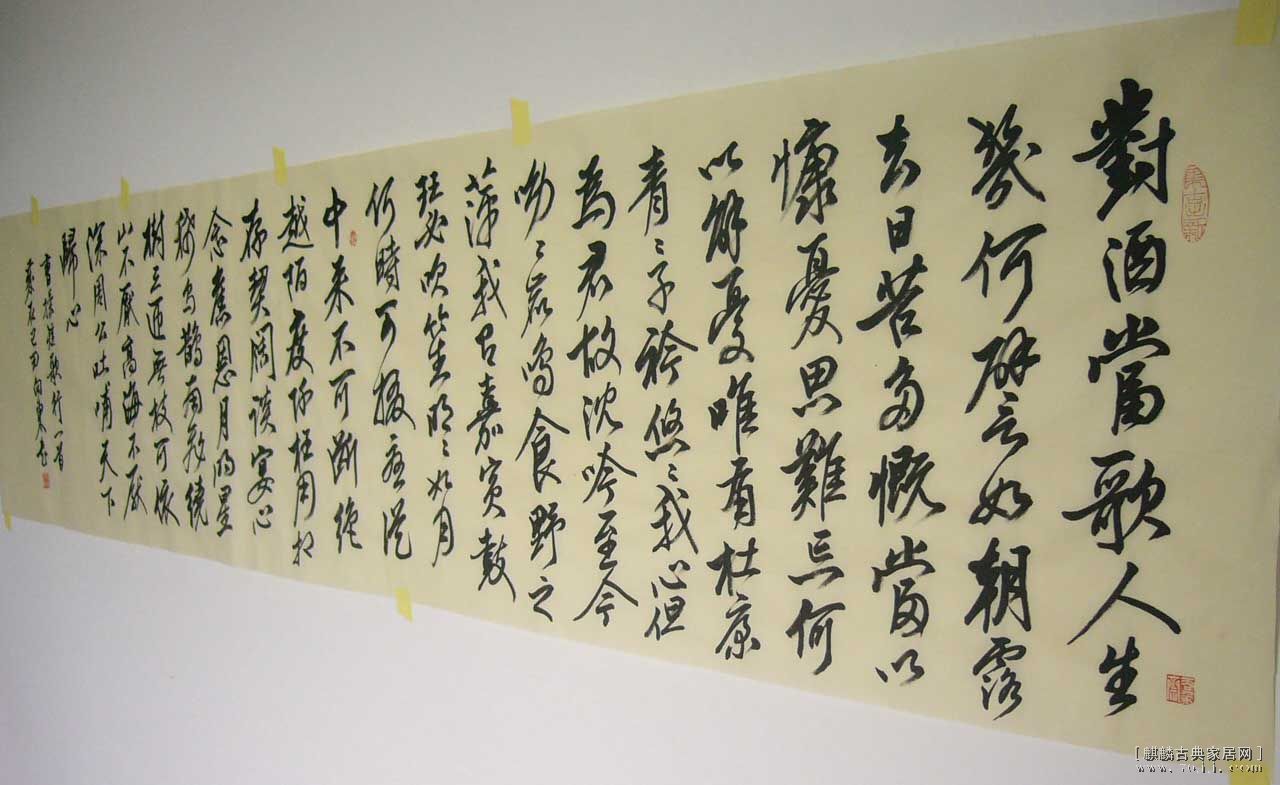 對酒當歌人生
幾何譬如朝露
去日苦多慨當以
慷憂思難忘何
以解憂唯有杜康
青々子衿悠々我心但
為君故沈吟至今
呦々鹿鳴食野之
蘋我有嘉賓鼓
瑟吹笙明々如月
何時可掇憂從
中来不可斷絶
越陌度阡枉用相
存契闊談宴心
念舊恩月明星
稀烏鵲南飛繞
樹三匝無枝可依
山不厭高海不厭
深周公吐哺天下
歸心
書操短歌行一首
歲在己丑向東
[麒麟古典家居网]